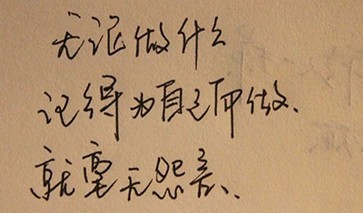 无论做什么
记得为自己而做、
就毫无怨言、